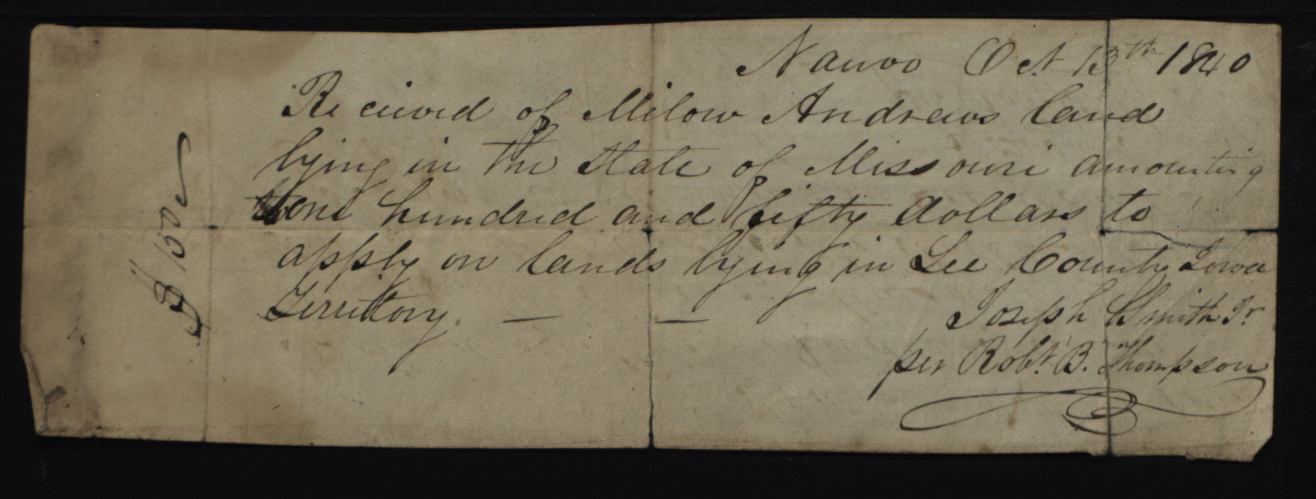 Nauvoo Oct 13th 1840
Received of Milow Andrews land
lying in the State of Missouri amounting
one hundred and fifty dollars to
apply on lands lying in Lee County Iowa
Territory. — —
Joseph Smith Jr
per Robt. B. Thompson
$150